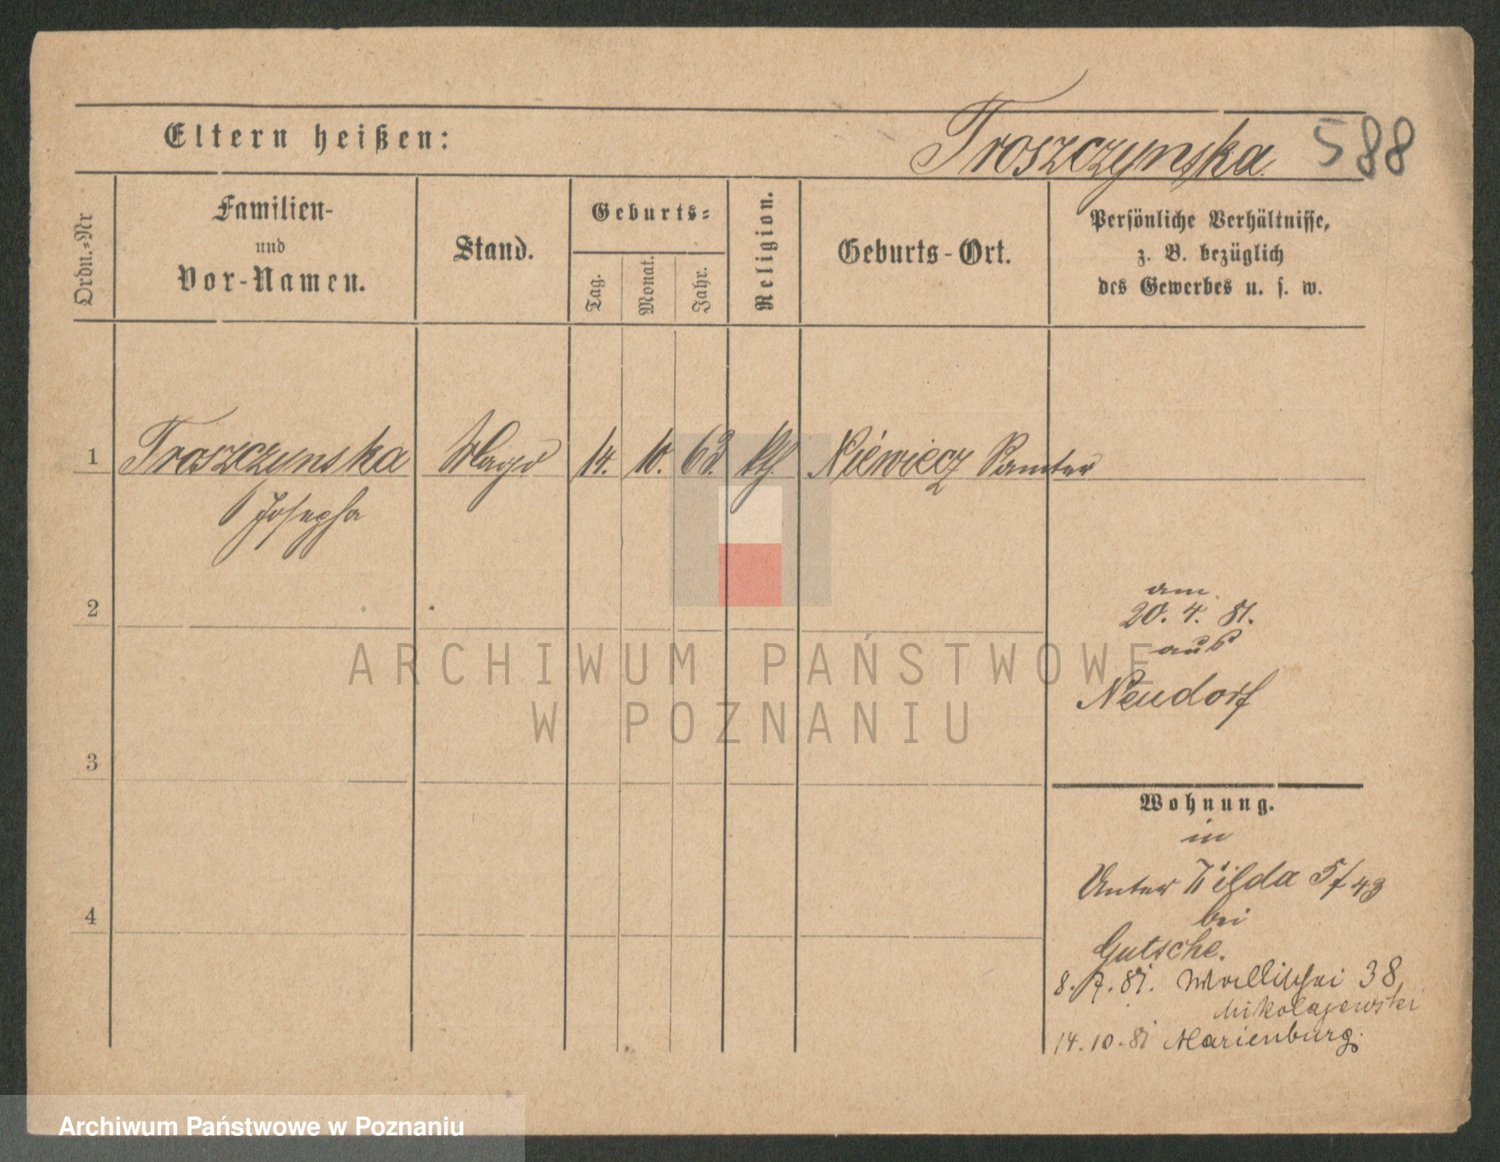 Eltern heißen:
Troszczynska
588
Ordn.=Nr
Familien-
und
Vor-Namen.
Stand.
Geburts=
Tag.
Monat.
Jahr.
Religion.
Geburts-Ort.
Persönliche Verhältnisse,
z. B. bezüglich
des Gewerbes u. s. w.
1 Troszczynska Magd 14. 10. 62. kth Niewiecz Samter
Josepha
2
3
4
am
20. 4. 81.
aus
Neudorf
Wohnung.
in
Unter Wilda 5/43
bei
Gutsche.
8. 7. 81. Wallischei 38
Mikolajewski
14.10.81 Marienburg.
ARCHIWUM PAŃSTWOWE
W POZNANIU
Archiwum Państwowe w Poznaniu